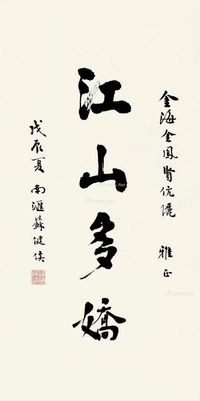 金海金鳳賢伉儷 雅正
江山多嬌
戊辰夏 南滙蘇健侯